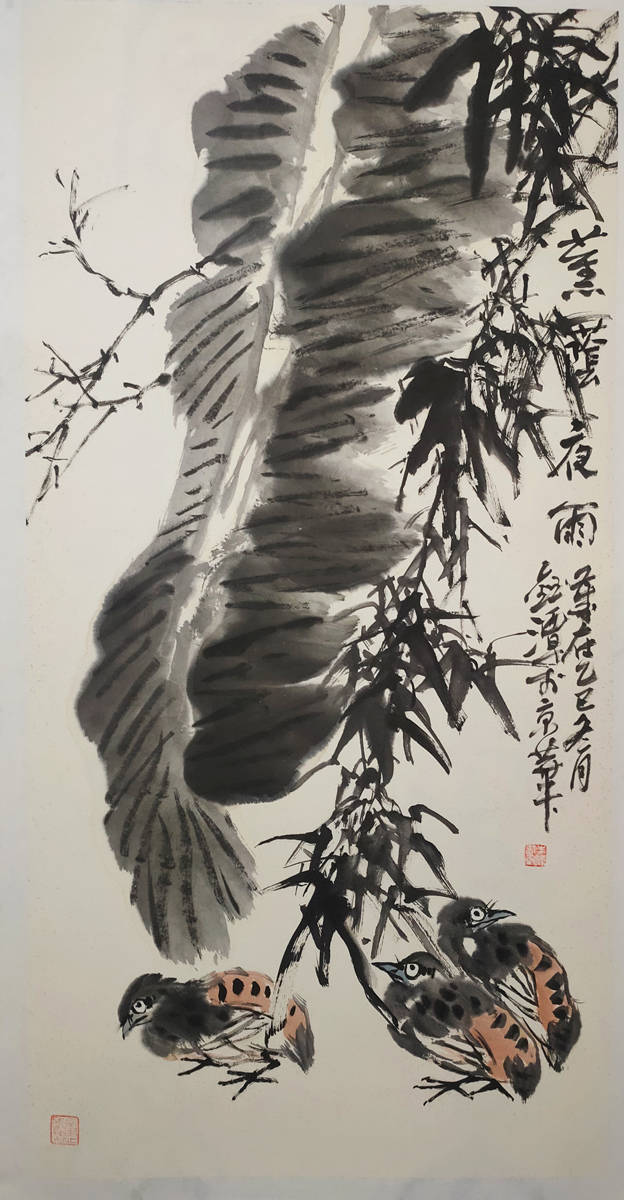 蕉蔭夜雨
歲在乙巳冬月
潭於京華